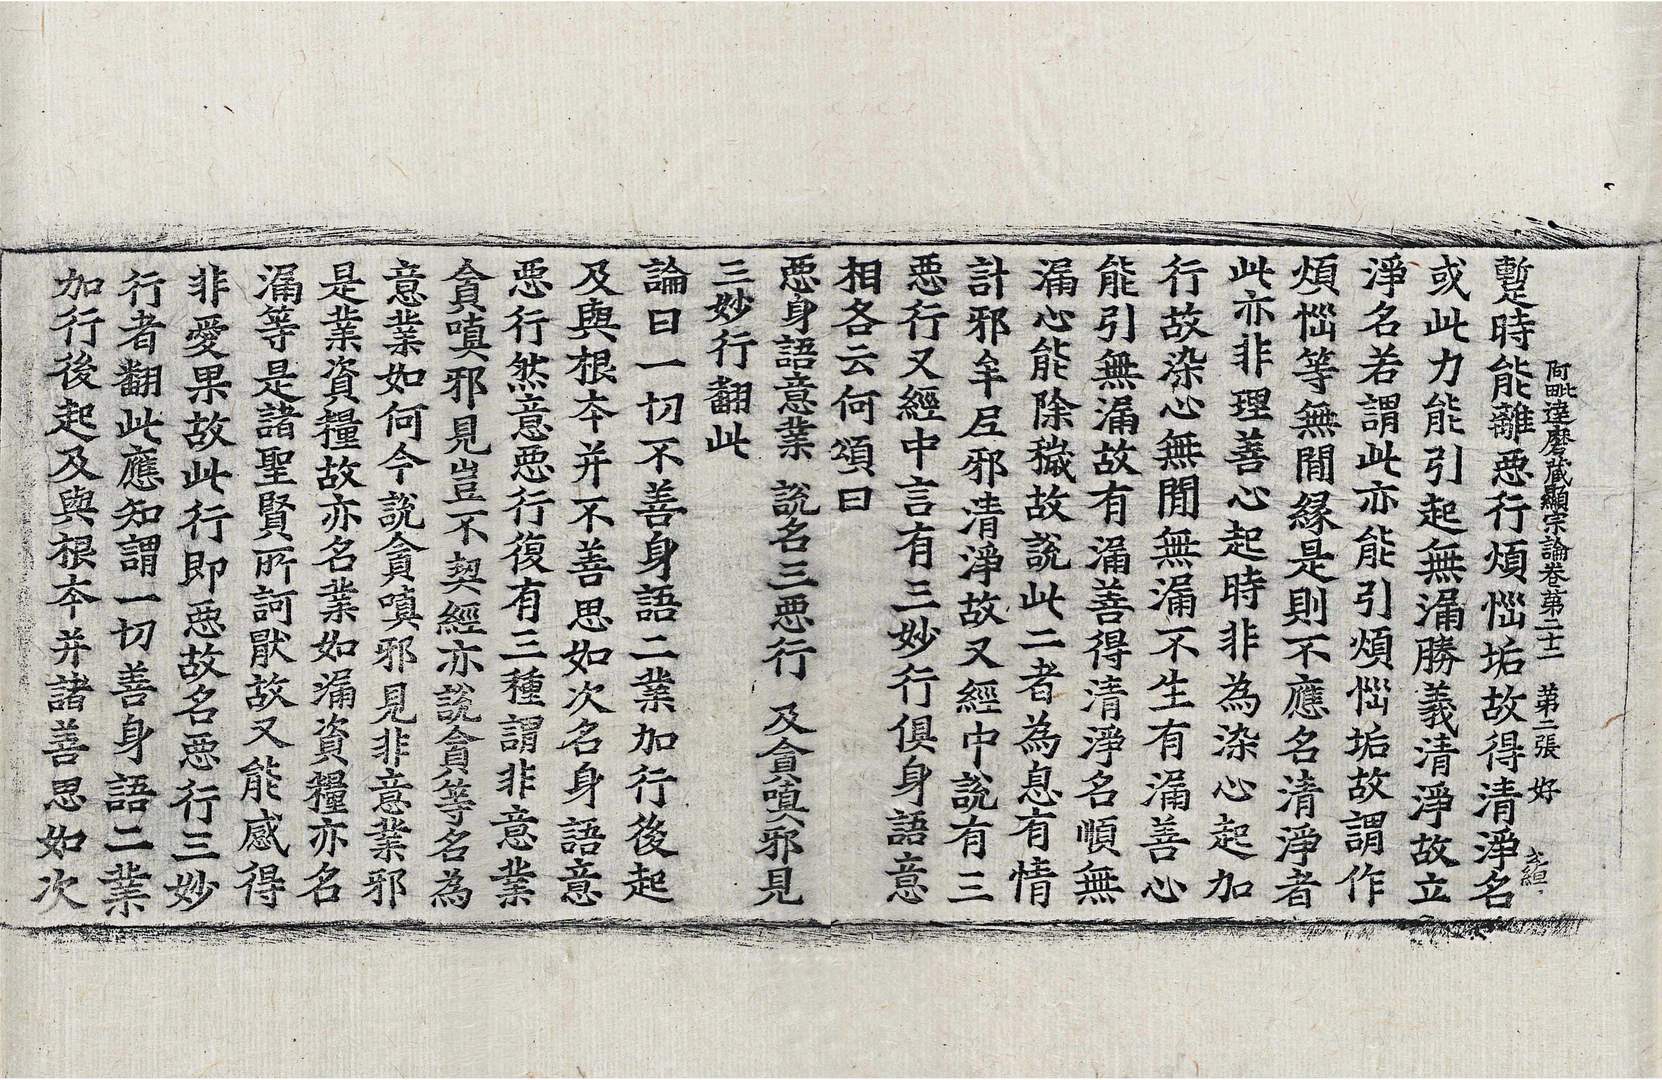 阿毗達磨藏顯宗論卷第二十一　第二張　好
暫時能離惡行煩惱垢故得清淨名
或此力能引起無漏勝義清淨故立
淨名若謂此亦能引煩惱垢故謂作
煩惱等無間緣是則不應名清淨者
此亦非理善心起時非為染心起加
行故染心無間無漏不生有漏善心
能引無漏故有漏善得清淨名順無
漏心能除穢故說此二者為息有情
計邪牟尼邪清淨故又經中說有三
惡行又經中言有三妙行俱身語意
相各云何頌曰
惡身語意業　說名三惡行　及貪嗔邪見
三妙行翻此
論曰一切不善身語二業加行後起
及與根本并不善思如次名身語意
惡行然意惡行復有三種謂非意業
貪嗔邪見豈不契經亦說貪等名為
意業如何今說貪嗔邪見非意業邪
是業資糧故亦名業如漏資糧亦名
漏等是諸聖賢所訶厭故又能感得
非愛果故此行即惡故名惡行三妙
行者翻此應知謂一切善身語二業
加行後起及與根本并諸善思如次